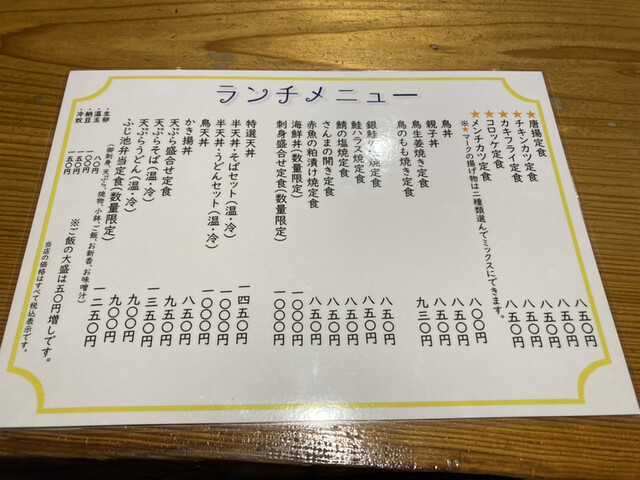 ランチメニュー
★唐揚定食 八五〇円
★チキンカツ定食 八五〇円
★カキフライ定食 八五〇円
★コロッケ定食 八五〇円
★メンチカツ定食 八五〇円
※★マークの揚げ物は二種類選んでミックスにできます。
鳥丼 八〇〇円
親子丼 八五〇円
鳥生姜焼き定食 八五〇円
鳥のもも焼き定食 九三〇円
銀鮭 焼定食 八五〇円
鮭ハラス焼定食 八五〇円
鯖の塩焼定食 八五〇円
さんまの開き定食 八五〇円
赤魚の粕漬け焼定食 八五〇円
海鮮丼(数量限定) 一〇〇〇円
刺身盛合せ定食(数量限定) 一〇〇〇円
特選天丼 一四五〇円
半天丼・そばセット(温・冷) 一〇〇〇円
半天丼・うどんセット(温・冷) 一〇〇〇円
鳥天丼 八五〇円
かき揚丼 九五〇円
天ぷら盛合せ定食 一三五〇円
天ぷらそば(温・冷) 九〇〇円
天ぷらうどん(温・冷) 九〇〇円
ふじ池弁当定食(数量限定) 一二五〇円
(御刺身、天ぷら、焼物、小鉢、ご飯、お新香、お味噌汁)
・生卵 八〇円
・温玉 一〇〇円
・納豆 一五〇円
・冷奴 一五〇円
※ご飯の大盛は五〇円増しです。
当店の価格はすべて税込表示です。